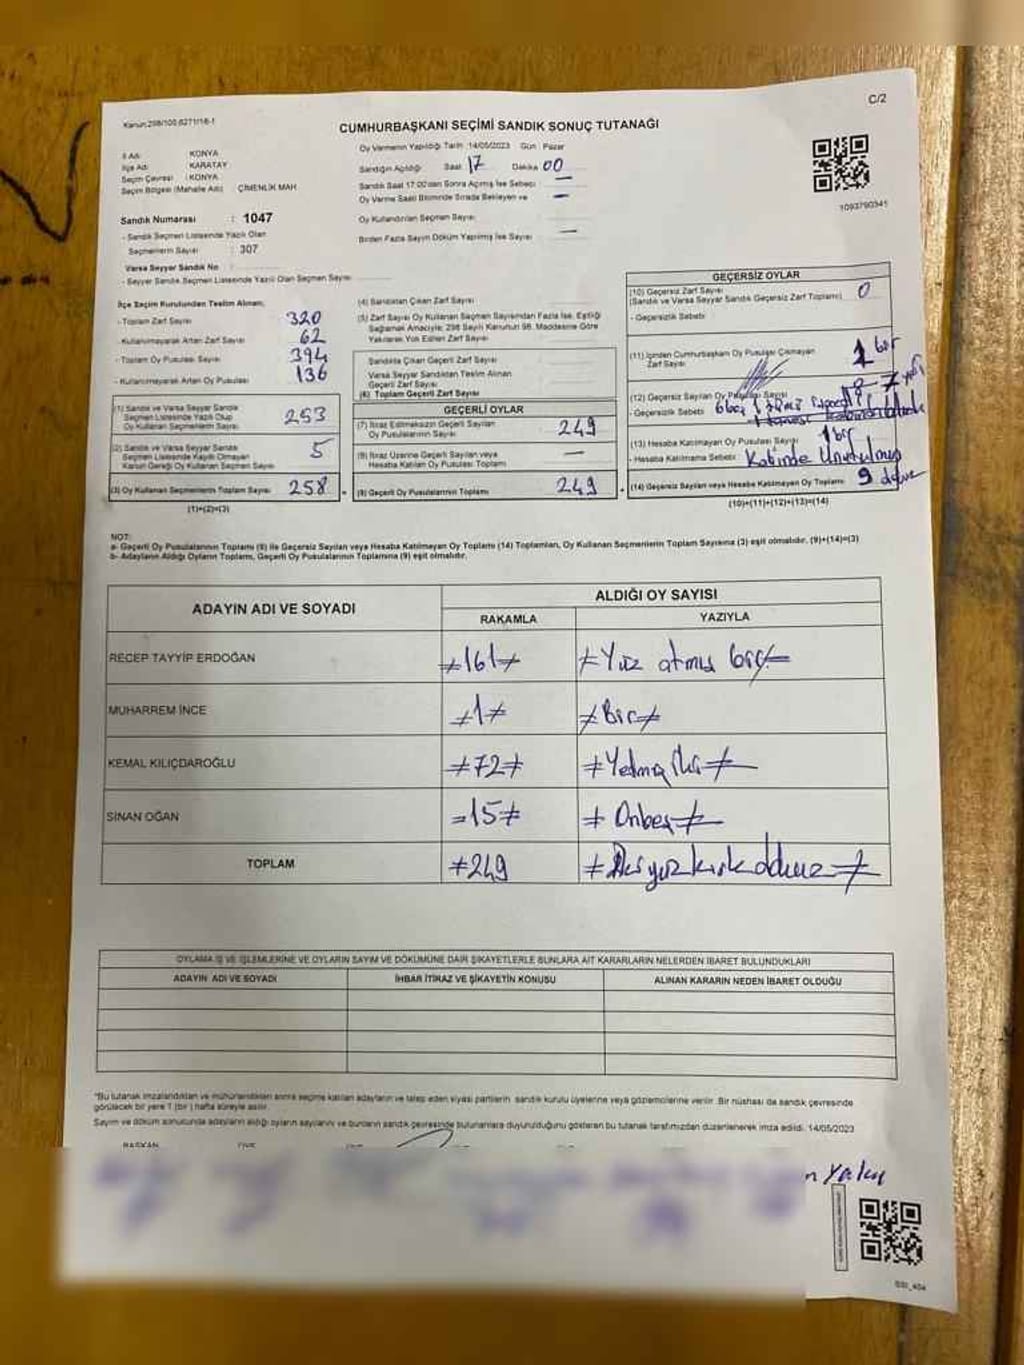 C/2
Kanun:298/105,6271/16-1
CUMHURBAŞKANI SEÇİMİ SANDIK SONUÇ TUTANAĞI
İl Adı : KONYA
İlçe Adı : KARATAY
Seçim Çevresi : KONYA
Seçim Bölgesi (Mahalle Adı) : ÇİMENLİK MAH
Sandık Numarası : 1047
- Sandık Seçmen Listesinde Yazılı Olan
Seçmenlerin Sayısı : 307
Varsa Seyyar Sandık No :
- Seyyar Sandık Seçmen Listesinde Yazılı Olan Seçmen Sayısı
Oy Vermenin Yapıldığı Tarih :14/05/2023 Gün : Pazar
Sandığın Açıldığı Saat 17 Dakika 00
Sandık Saat 17:00'dan Sonra Açılmış İse Sebebi —
Oy Verme Saati Bitiminde Sırada Bekleyen ve —
Oy Kullandırılan Seçmen Sayısı
Birden Fazla Sayım Döküm Yapılmış İse Sayısı —
1093790341
İlçe Seçim Kurulundan Teslim Alınan;
- Toplam Zarf Sayısı 320
- Kullanılmayarak Artan Zarf Sayısı 62
- Toplam Oy Pusulası Sayısı 394
- Kullanılmayarak Artan Oy Pusulası 136
(1) Sandık ve Varsa Seyyar Sandık
Seçmen Listesinde Yazılı Olup
Oy Kullanan Seçmenlerin Sayısı 253
(2) Sandık ve Varsa Seyyar Sandık
Seçmen Listesinde Kayıtlı Olmayan
Kanun Gereği Oy Kullanan Seçmen Sayısı 5
(3) Oy Kullanan Seçmenlerin Toplam Sayısı 258
(1)+(2)=(3)
(4) Sandıktan Çıkan Zarf Sayısı
(5) Zarf Sayısı Oy Kullanan Seçmen Sayısından Fazla İse, Eşitliği
Sağlamak Amacıyla; 298 Sayılı Kanunun 98. Maddesine Göre
Yakılarak Yok Edilen Zarf Sayısı
Sandıkta Çıkan Geçerli Zarf Sayısı
Varsa Seyyar Sandıktan Teslim Alınan
Geçerli Zarf Sayısı
(6) Toplam Geçerli Zarf Sayısı
GEÇERLİ OYLAR
(7) İtiraz Edilmeksizin Geçerli Sayılan
Oy Pusulasının Sayısı 249
(8) İtiraz Üzerine Geçerli Sayılan veya
Hesaba Katılan Oy Pusulası Toplamı —
(9) Geçerli Oy Pusulalarının Toplamı 249
GEÇERSİZ OYLAR
(10) Geçersiz Zarf Sayısı
(Sandık ve Varsa Seyyar Sandık Geçersiz Zarf Toplamı) 0
- Geçersizlik Sebebi:
(11) İçinden Cumhurbaşkanı Oy Pusulası Çıkmayan
Zarf Sayısı 1 bir
(12) Geçersiz Sayılan Oy Pusulası Sayısı 7 yedi
- Geçersizlik Sebebi
(13) Hesaba Katılmayan Oy Pusulası Sayısı 1 bir
- Hesaba Katılmama Sebebi: Kabinde Unutulmuş
(14) Geçersiz Sayılan veya Hesaba Katılmayan Oy Toplamı 9 dokuz
(10)+(11)+(12)+(13)=(14)
NOT:
a- Geçerli Oy Pusulalarının Toplamı (9) ile Geçersiz Sayılan veya Hesaba Katılmayan Oy Toplamı (14) Toplamları, Oy Kullanan Seçmenlerin Toplam Sayısına (3) eşit olmalıdır. (9)+(14)=(3)
b- Adayların Aldığı Oyların Toplamı, Geçerli Oy Pusulalarının Toplamına (9) eşit olmalıdır.
ADAYIN ADI VE SOYADI
ALDIĞI OY SAYISI
RAKAMLA YAZIYLA
RECEP TAYYİP ERDOĞAN ≠161≠ ≠Yüz atmış bir≠
MUHARREM İNCE ≠1≠ ≠Bir≠
KEMAL KILIÇDAROĞLU ≠72≠ ≠Yetmiş iki≠
SİNAN OĞAN =15≠ ≠Onbeş≠
TOPLAM ≠249 ≠İkiyüz kırk dokuz≠
OYLAMA İŞ VE İŞLEMLERİNE VE OYLARIN SAYIM VE DÖKÜMÜNE DAİR ŞİKAYETLERLE BUNLARA AİT KARARLARIN NELERDEN İBARET BULUNDUKLARI
ADAYIN ADI VE SOYADI İHBAR İTİRAZ VE ŞİKAYETİN KONUSU ALINAN KARARIN NEDEN İBARET OLDUĞU
"Bu tutanak imzalandıktan ve mühürlendikten sonra seçime katılan adayların ve talep eden siyasi partilerin sandık kurulu üyelerine veya gözlemcilerine verilir. Bir nüshası da sandık çevresinde
görülecek bir yere 1 (bir) hafta süreyle asılır.
Sayım ve döküm sonucunda adayların aldığı oyların sayılarını ve bunların sandık çevresinde bulunanlara duyurulduğunu gösteren bu tutanak tarafımızdan düzenlenerek imza edildi. 14/05/2023
BAŞKAN ÜYE